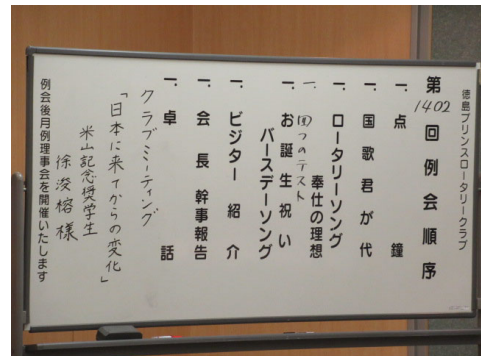 徳島プリンスロータリークラブ
第1402回例会順序
一、点鐘
一、国歌君が代
一、ロータリーソング
奉仕の理想
一、四つのテスト
一、お誕生祝い
バースデーソング
一、ビジター紹介
一、会長幹事報告
一、卓話
クラブミーティング
「日本に来てからの変化」
米山記念奨学生
徐浚榕様
例会後月例理事会を開催いたします